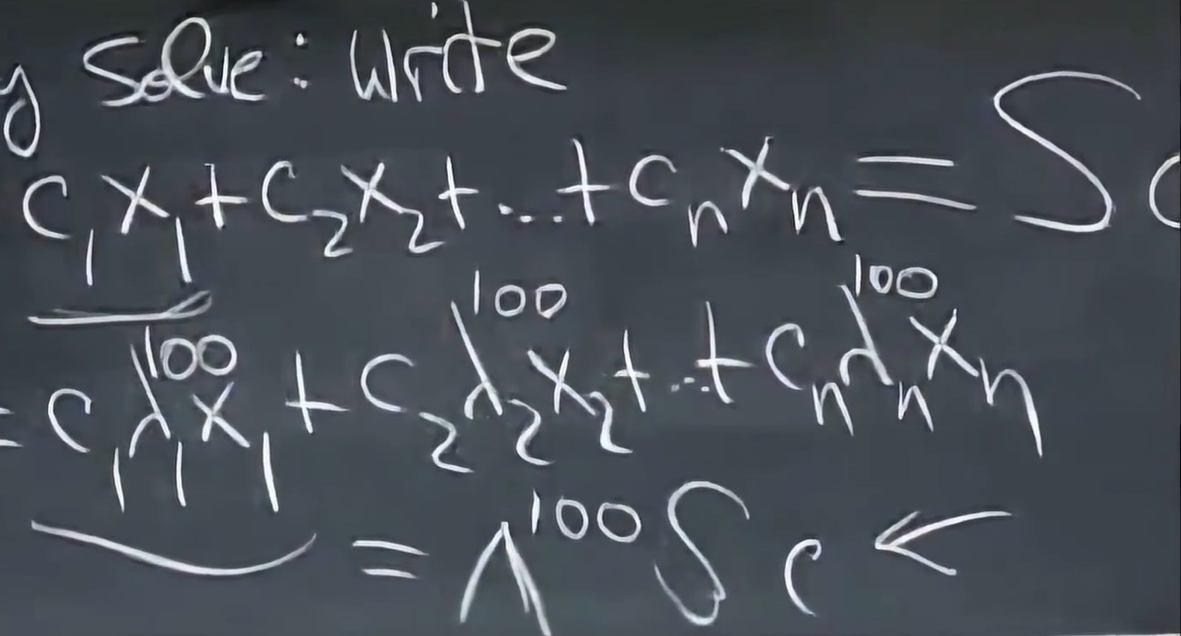 y solve: write
c₁x₁ + c₂x₂ + ... + cₙxₙ = Sc
= c₁λ₁¹⁰⁰x₁ + c₂λ₂¹⁰⁰x₂ + ... + cₙλₙ¹⁰⁰xₙ
= Λ¹⁰⁰ S c ←